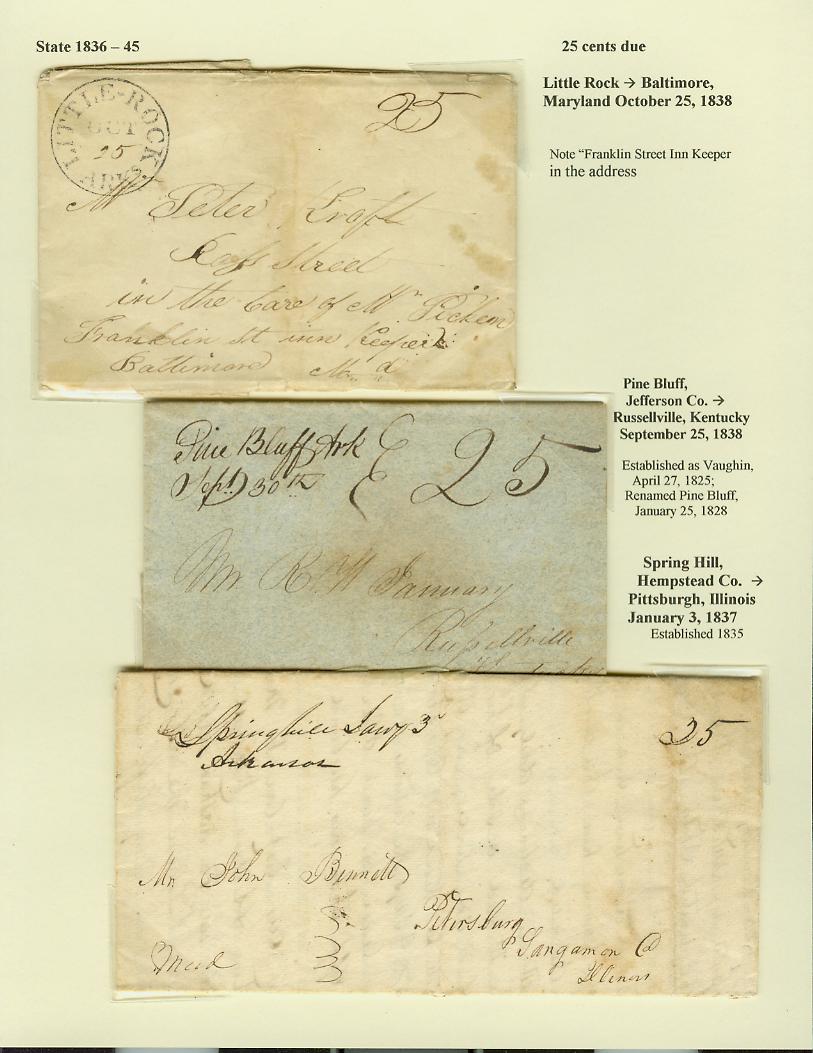 State 1836 – 45
25 cents due
Little Rock → Baltimore,
Maryland October 25, 1838
Note “Franklin Street Inn Keeper
in the address
LITTLE-ROCK
OCT
25
ARKS.
25
Mr Peter
Street
in the Care of Mr
Franklin St inn Keeper
Baltimore Md
Pine Bluff,
Jefferson Co. →
Russellville, Kentucky
September 25, 1838
Established as Vaughin,
April 27, 1825;
Renamed Pine Bluff,
January 25, 1828
Pine Bluff Ark
Sept 30th
25
Mr R. W January
Russellville
Spring Hill,
Hempstead Co. →
Pittsburgh, Illinois
January 3, 1837
Established 1835
Springhill Jany 3d
Arkansas
25
Mr John Bennett
Petersburg
Sangamon Co
Illinois